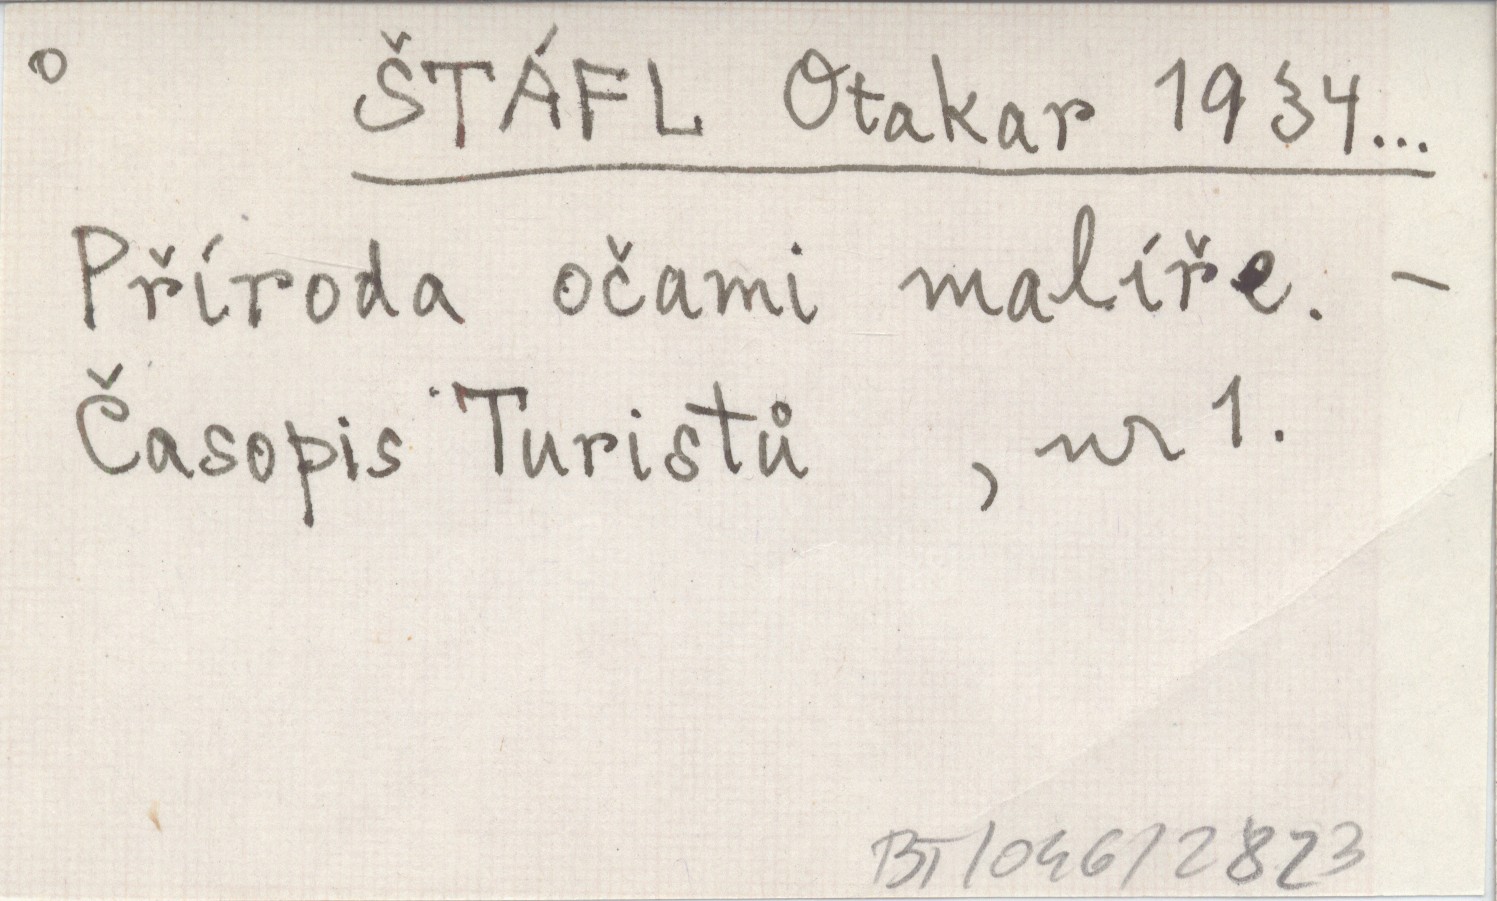 o ŠTÁFL Otakar 1934...
Příroda očami malíře. –
Časopis Turistů , nr 1.
BT/046/2823